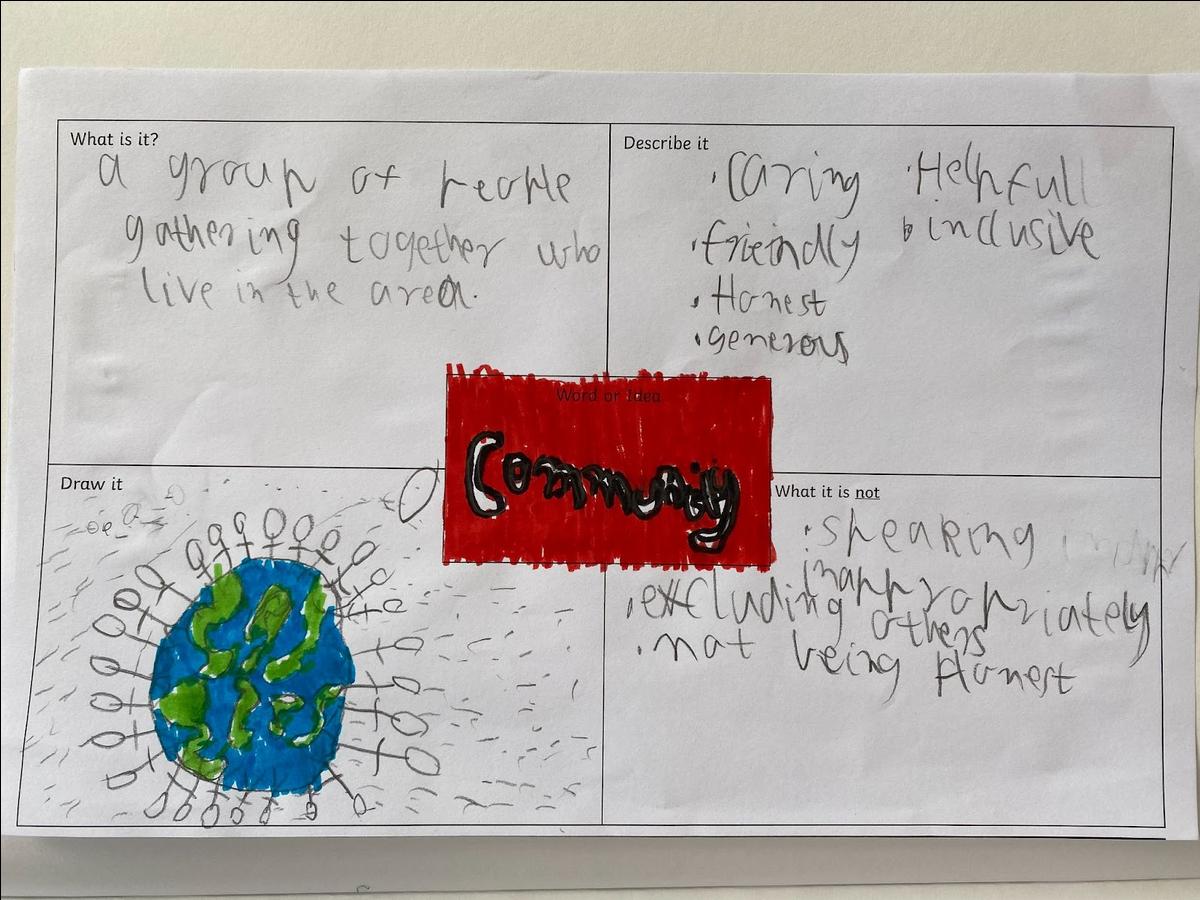 What is it?
a group of people
gathering together who
live in the area.
Describe it
• Caring • Helpfull
• friendly • inclusive
• Honest
• generous
Word or Idea
Community
Draw it
What it is not
• speaking
inappropriately
• excluding others
• not being Honest